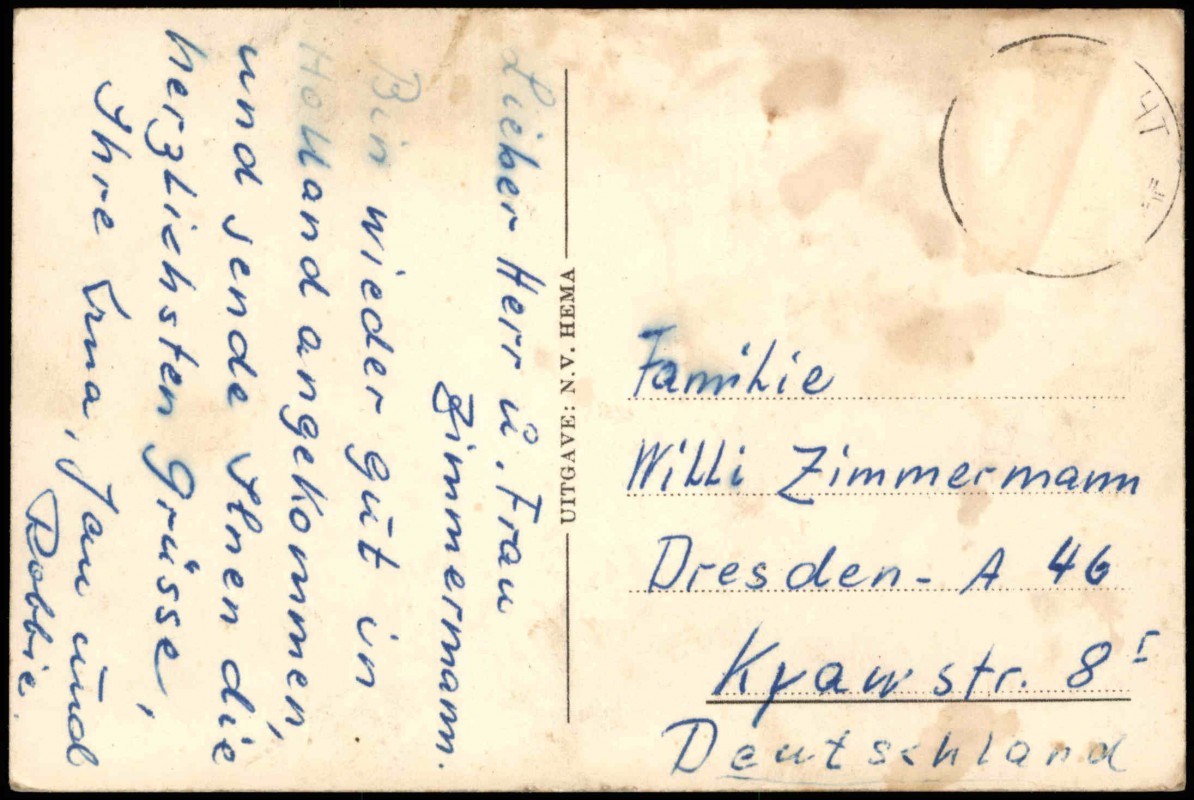 Lieber Herr u. Frau
Zimmermann.
Bin wieder gut in
Holland angekommen,
und sende Ihnen die
herzlichsten Grüsse,
Ihre Erna, Jan und
Robbie.
UITGAVE: N.V. HEMA
Familie
Willi Zimmermann
Dresden - A 46
Kyawstr. 8 I
Deutschland